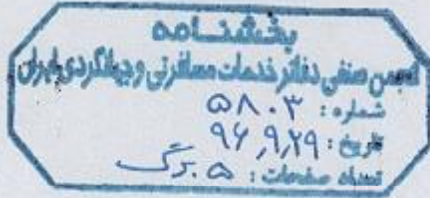 بخشنامه
انجمن صنفی دفاتر خدمات مسافرتی و جهانگردی ایران
شماره : ۵۸۰۳
تاریخ : ۹۶,۹,۲۹
تعداد صفحات : ۵ برگ